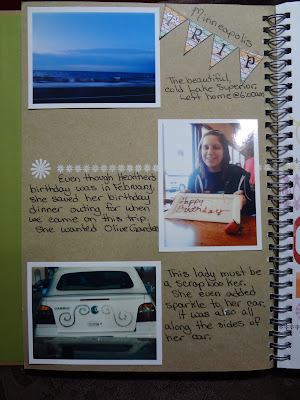 Minneapolis
TRIP
The beautiful,
cold Lake Superior.
Left home @ 6:00am
Even though Heather's
birthday was in February,
she saved her birthday
dinner outing for when
we came on this trip.
She wanted Olive Garden
Happy
Birthday
This lady must be
a scrapbooker.
She even added
sparkle to her car.
it was also all
along the sides of
her car.